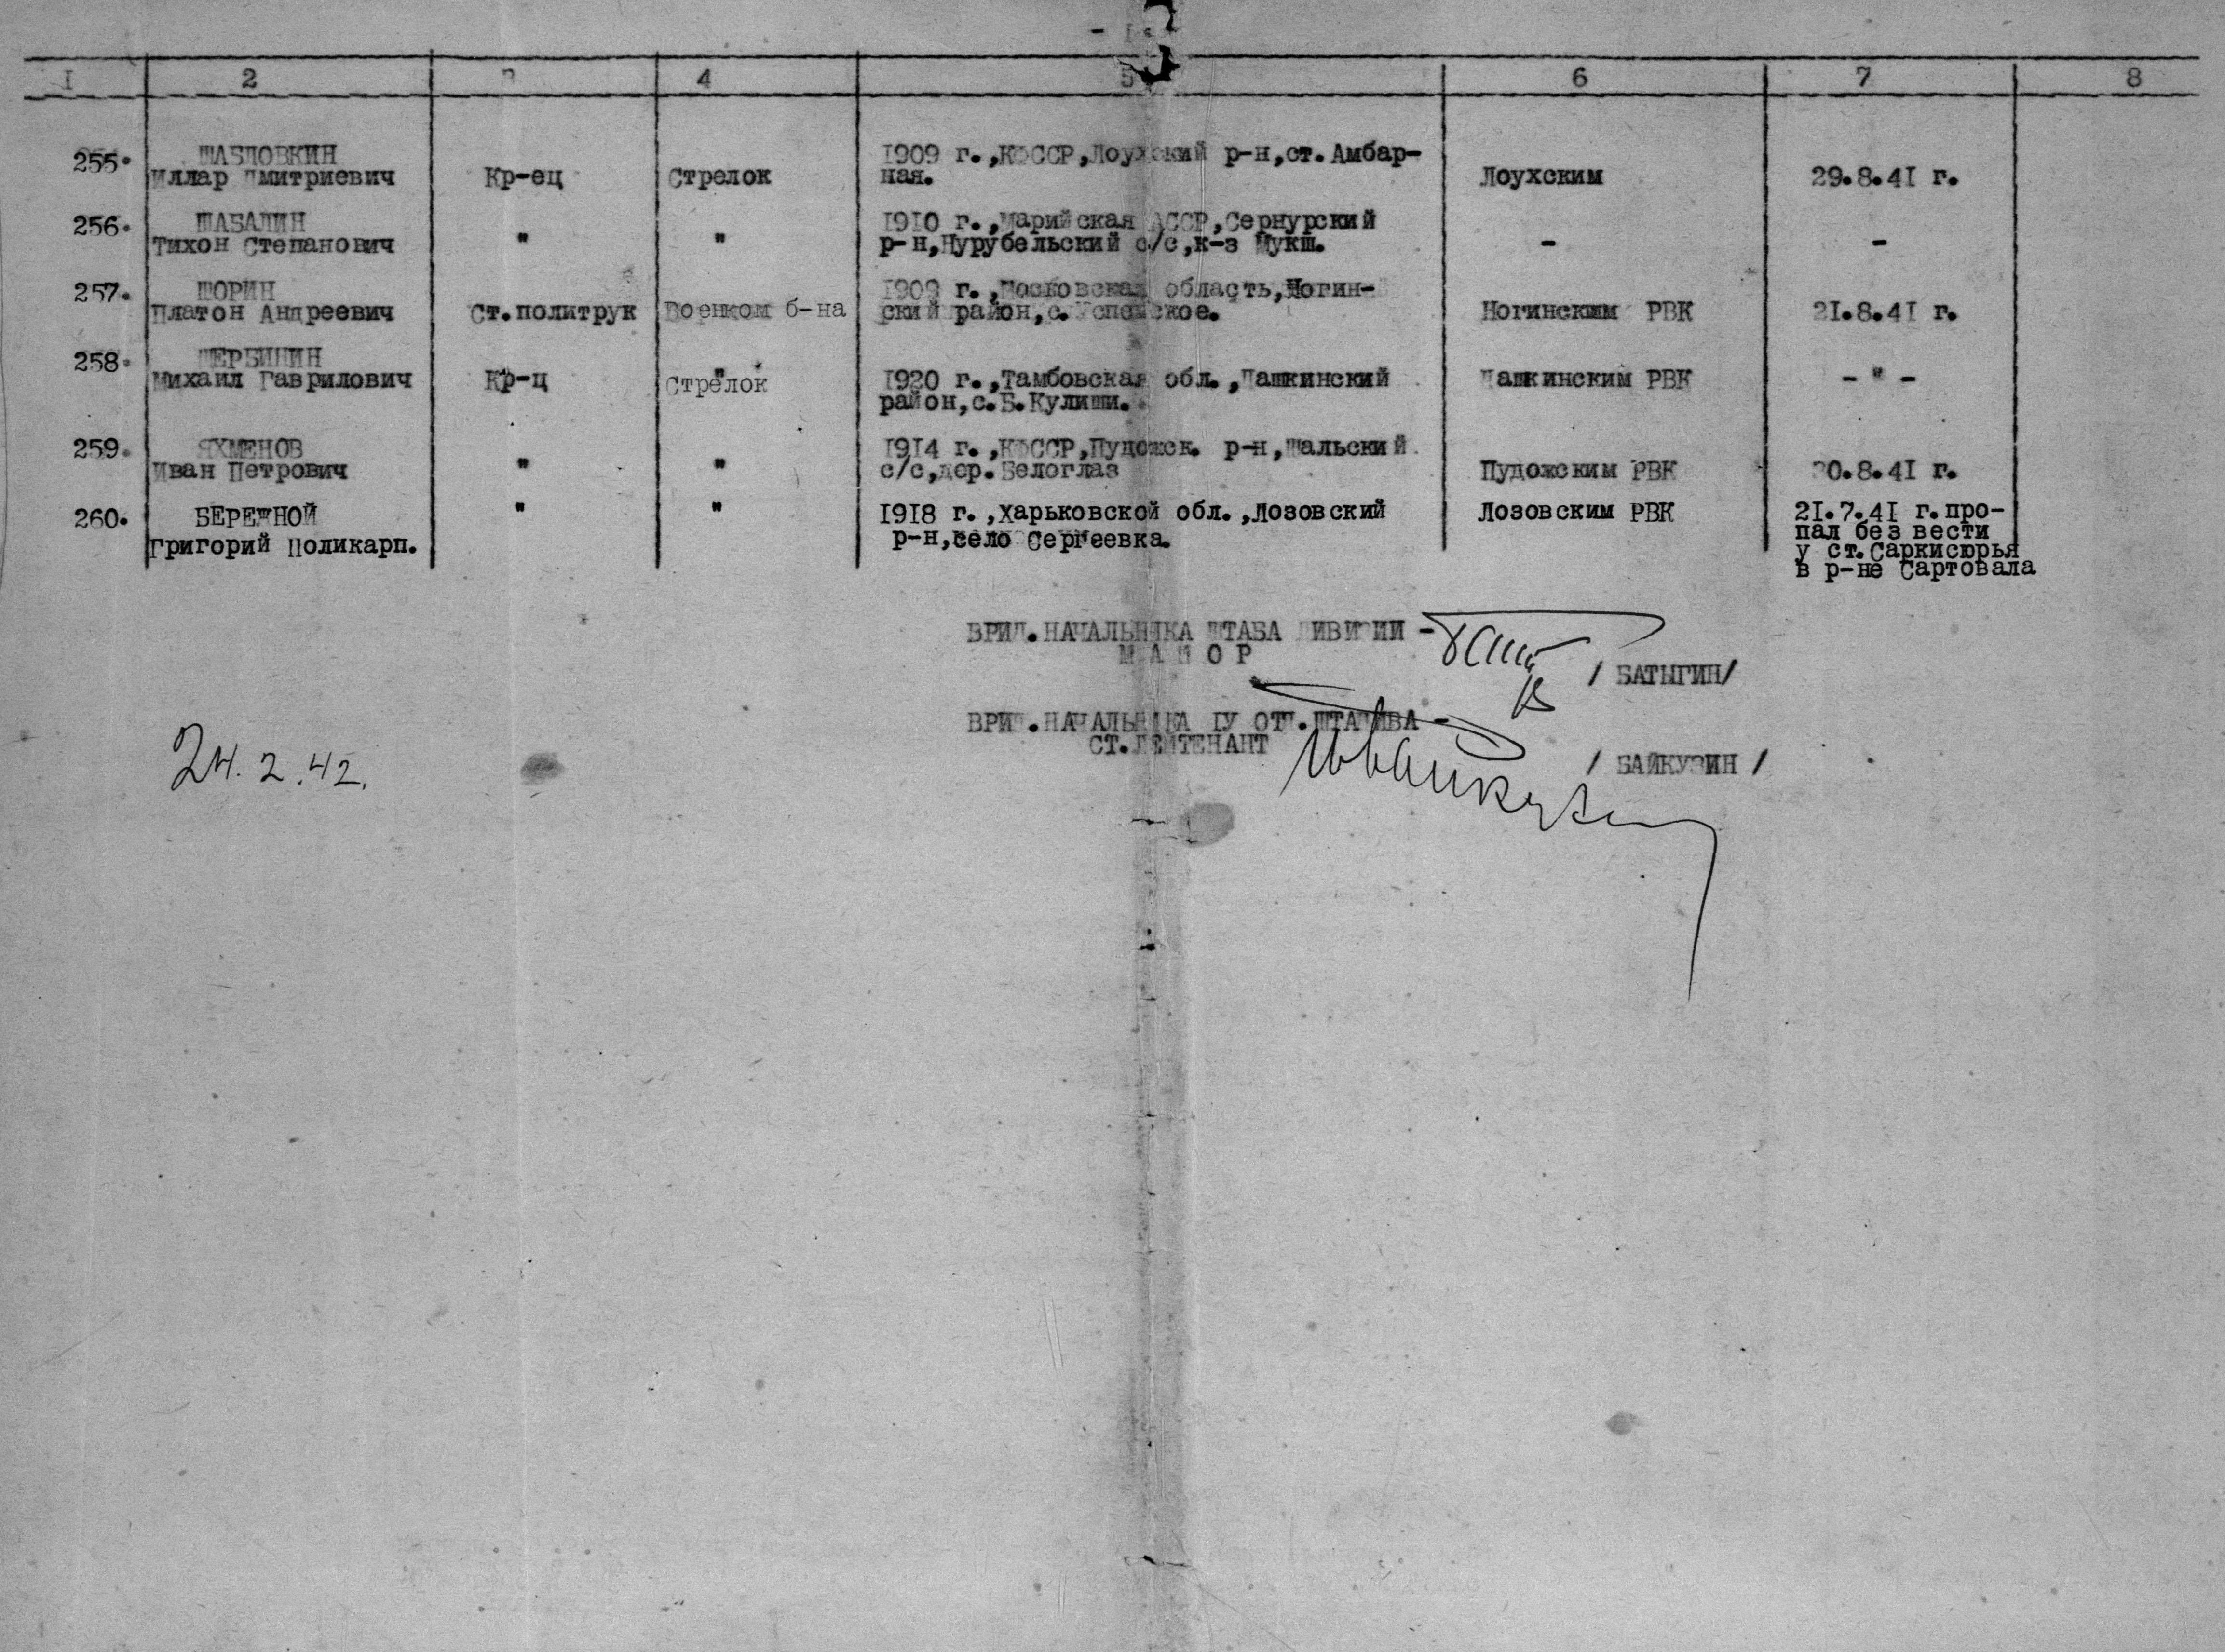 1 2 4 5 6 7 8
255. ШАБЛОВКИН 1909 г.,КФССР,Лоухский р-н,ст.Амбар-
Иллар Дмитриевич Кр-ец Стрелок ная. Лоухским 29.8.41 г.
256. ШАБАЛИН 1910 г.,Марийская АССР,Сернурский
Тихон Степанович " " р-н, с/с,к-з - -
257. ШОРИН 1909 г.,Московская область,Ногин-
Платон Андреевич Ст.политрук Военком б-на ский район,с.Успенское. Ногинским РВК 21.8.41 г.
258. ЩЕРБИНИН
Михаил Гаврилович Кр-ц Стрелок 1920 г.,Тамбовская обл.,Пашкинский Пашкинским РВК - " -
район,с.Б.Кулиши.
259. ЯХМЕНОВ 1914 г.,КФССР,Пудожск. р-н,Шальский
Иван Петрович " " с/с,дер.Белоглаз Пудожским РВК 30.8.41 г.
260. БЕРЕЖНОЙ " " 1918 г.,Харьковской обл.,Лозовский Лозовским РВК 21.7.41 г.про-
Григорий Поликарп. р-н,село Сергеевка. пал без вести
у ст.Саркисюрья
в р-не Сартовала
ВРИД.НАЧАЛЬНИКА ШТАБА ДИВИЗИИ -
МАЙОР
/ БАТЫГИН/
ВРИД.НАЧАЛЬНИКА IУ ОТД.ШТАДИВА -
СТ.ЛЕЙТЕНАНТ
/ БАЙКУЗИН /
24.2.42.